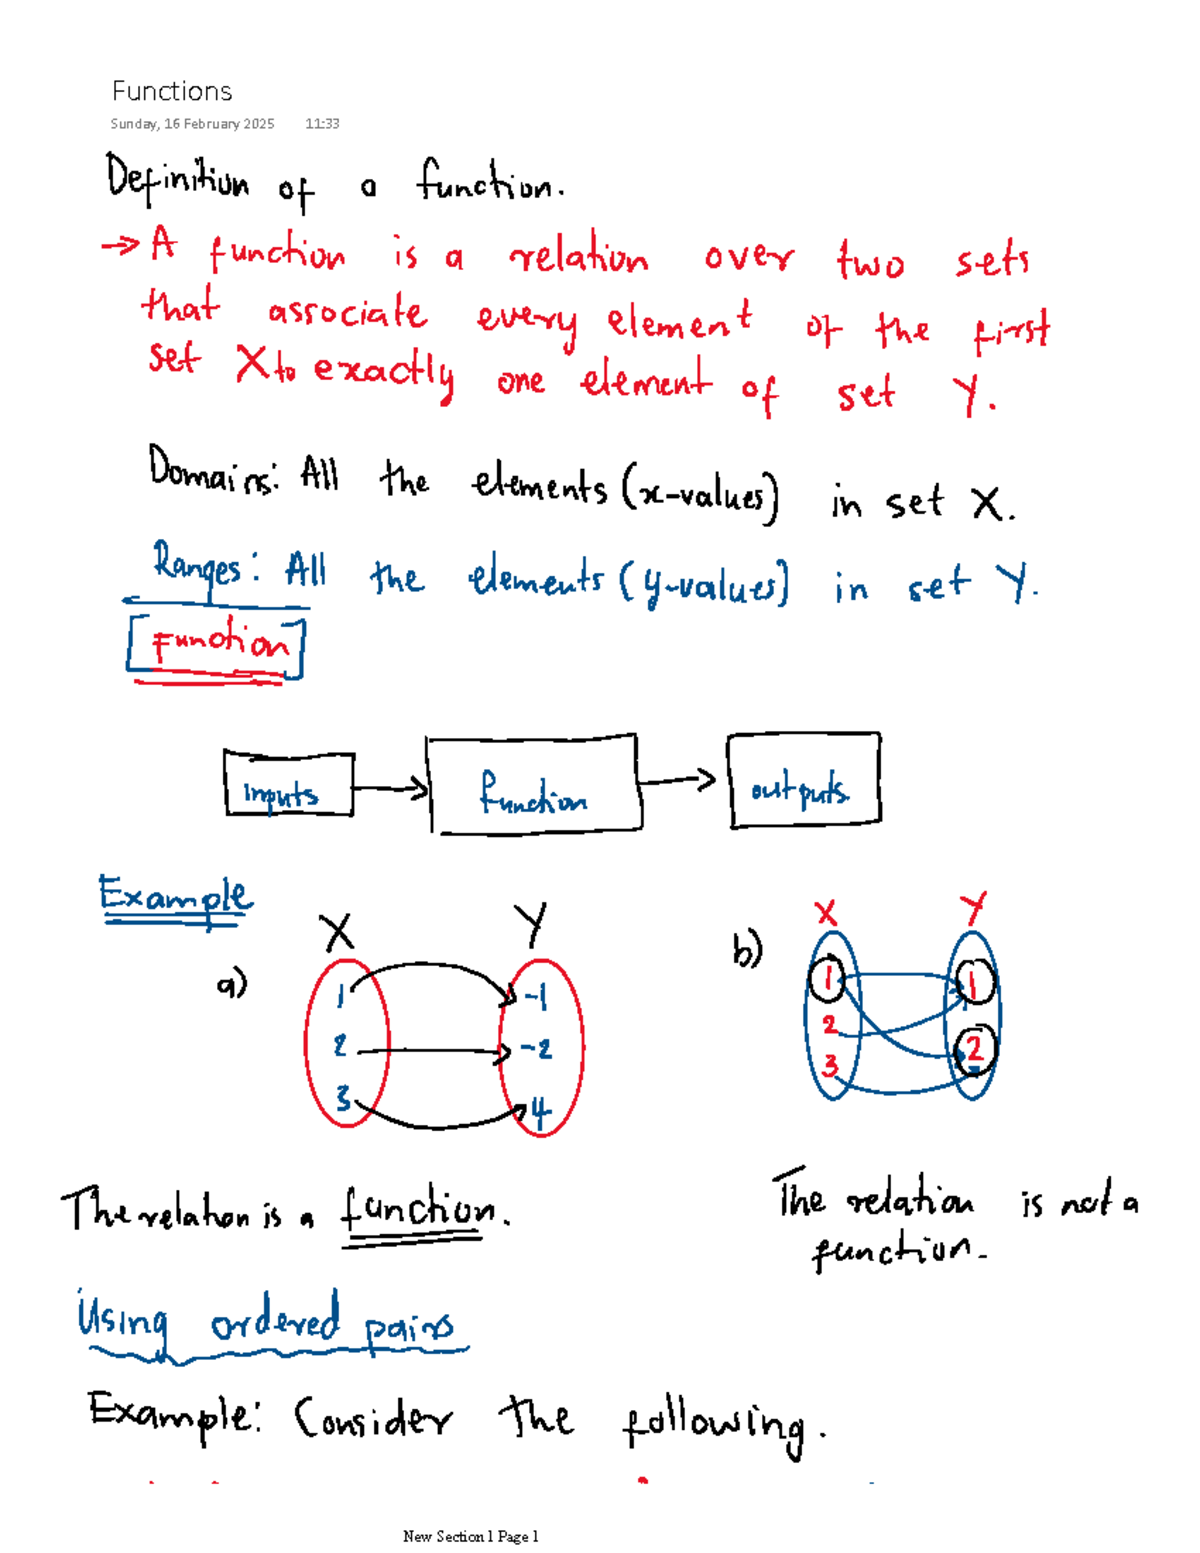 Functions
Sunday, 16 February 2025 11:33
Definition of a function.
→ A function is a relation over two sets
that associate every element of the first
set X to exactly one element of set Y.
Domains: All the elements (x-values) in set X.
Ranges: All the elements (y-values) in set Y.
[Function]
inputs → function → outputs
Example
a) X Y
1 -1
2 -2
3 4
b) X Y
1 1
2 2
3
The relation is a function.
The relation is not a
function.
Using ordered pairs
Example: Consider the following.
New Section 1 Page 1